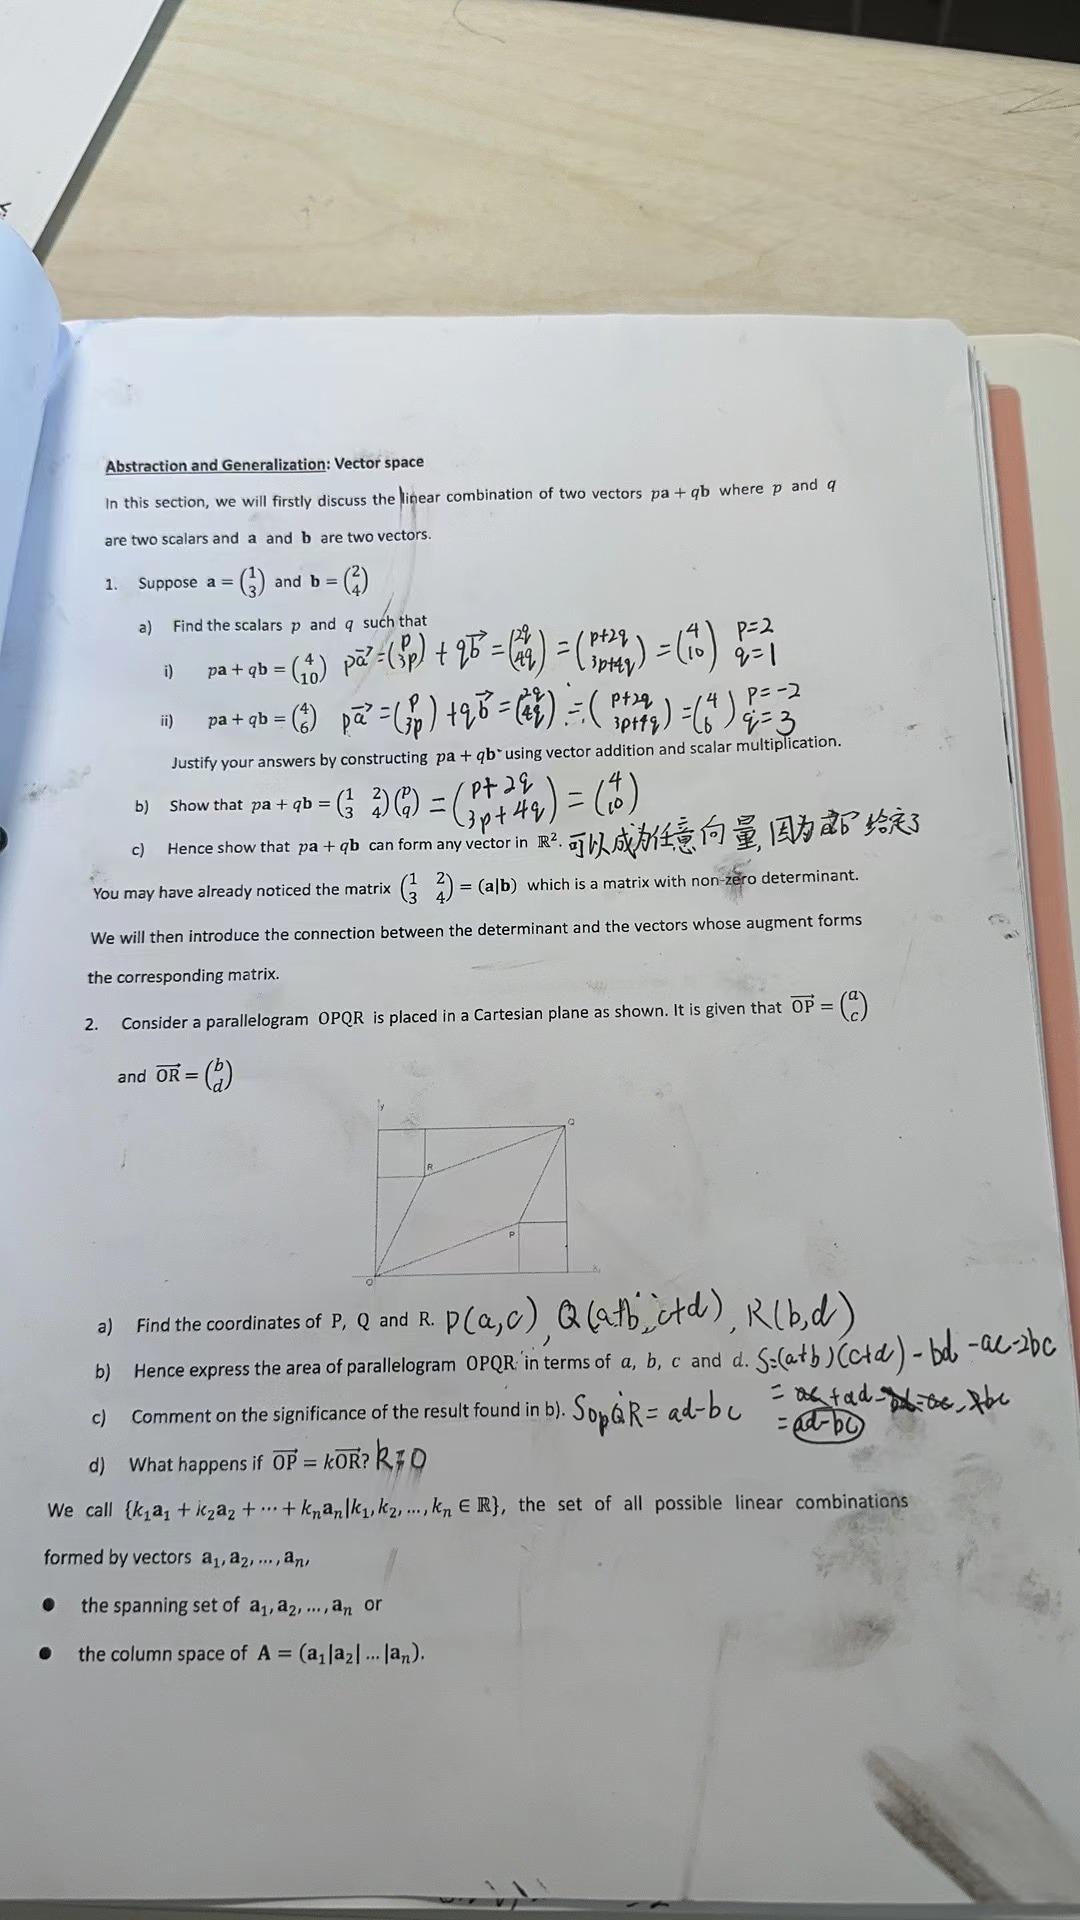 Abstraction and Generalization: Vector space
In this section, we will firstly discuss the linear combination of two vectors pa + qb where p and q
are two scalars and a and b are two vectors.
1. Suppose a = (1 3) and b = (2 4)
a) Find the scalars p and q such that
i) pa + qb = (4 10) pa⃗ = (p 3p) + qb⃗ = (2q 4q) = (p+2q 3p+4q) = (4 10) p=2 q=1
ii) pa + qb = (4 6) pa⃗ = (p 3p) + qb⃗ = (2q 4q) = (p+2q 3p+4q) = (4 6) p=-2 q=3
Justify your answers by constructing pa + qb using vector addition and scalar multiplication.
b) Show that pa + qb = (1 2 3 4)(p q) = (p+2q 3p+4q) = (4 10)
c) Hence show that pa + qb can form any vector in ℝ². 可以成为任意向量,因为 给定了
You may have already noticed the matrix (1 2 3 4) = (a|b) which is a matrix with non-zero determinant.
We will then introduce the connection between the determinant and the vectors whose augment forms
the corresponding matrix.
2. Consider a parallelogram OPQR is placed in a Cartesian plane as shown. It is given that OP = (a c)
and OR = (b d)
y
Q
R
P
O
x
a) Find the coordinates of P, Q and R. P(a,c), Q(a+b, c+d), R(b,d)
b) Hence express the area of parallelogram OPQR in terms of a, b, c and d. S=(a+b)(c+d)-bd-ac-2bc
c) Comment on the significance of the result found in b). SOPQR = ad-bc
= ad-bc
d) What happens if OP = kOR?
We call {k₁a₁ + k₂a₂ + ⋯ + kₙaₙ|k₁, k₂, ..., kₙ ∈ ℝ}, the set of all possible linear combinations
formed by vectors a₁, a₂, ..., aₙ,
● the spanning set of a₁, a₂, ..., aₙ or
● the column space of A = (a₁|a₂| ... |aₙ).